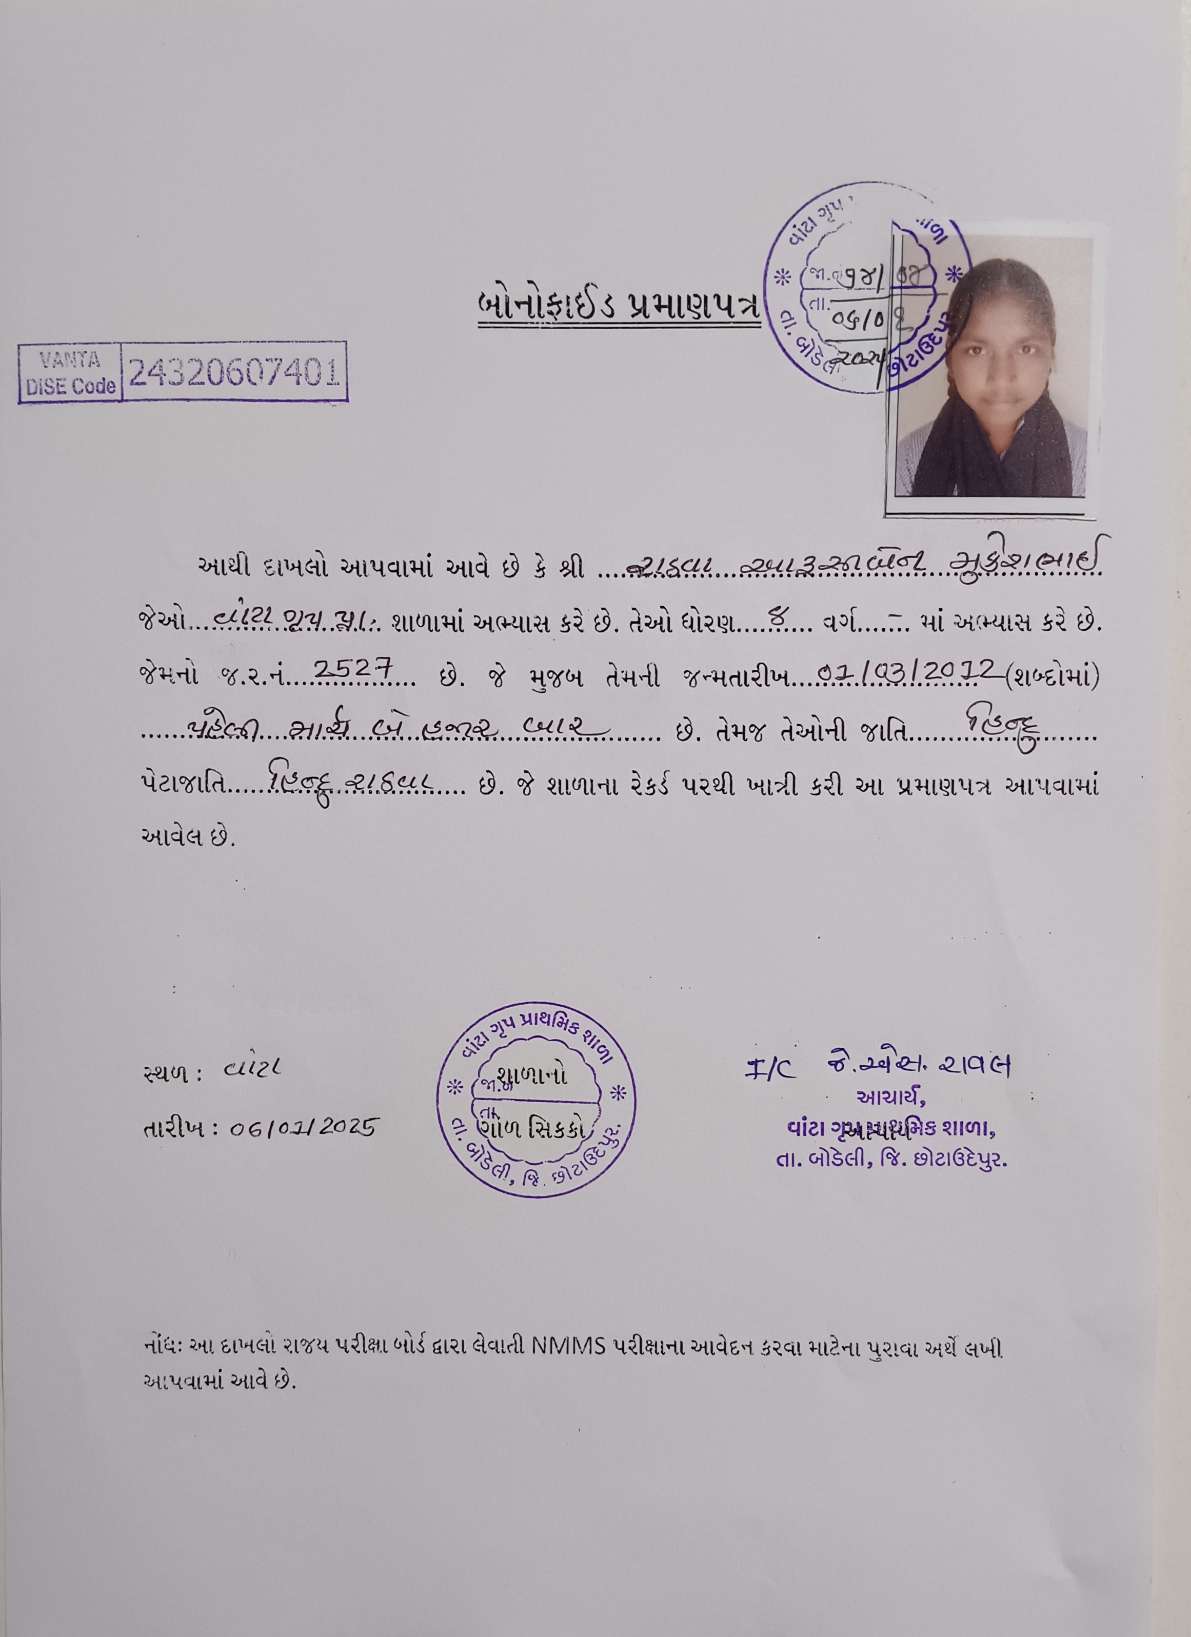 વાંટા ગૃપ શાળા
જા.ન ૧૪/૦૪
તા. ૦૬/૦૧
૨૦૨૫
તા. બોડેલી છોટાઉદેપુર
બોનોફાઈડ પ્રમાણપત્ર
VANTA DISE Code 24320607401
આથી દાખલો આપવામાં આવે છે કે શ્રી ...રાઠવા આરૂસાબેન મુકેશભાઈ
જેઓ...વાંટા ગૃપ પ્રા. શાળામાં અભ્યાસ કરે છે. તેઓ ધોરણ....૭.... વર્ગ....-.. માં અભ્યાસ કરે છે.
જેમનો જ.ર.નં....2527.... છે. જે મુજબ તેમની જન્મતારીખ...01/03/2012 (શબ્દોમાં)
......પહેલી માર્ચ બે હજાર બાર...... છે. તેમજ તેઓની જાતિ......હિન્દુ......
પેટાજાતિ.....હિન્દુ રાઠવા.... છે. જે શાળાના રેકર્ડ પરથી ખાત્રી કરી આ પ્રમાણપત્ર આપવામાં
આવેલ છે.
સ્થળ : વાંટા
તારીખ : 06/01/2025
વાંટા ગૃપ પ્રાથમિક શાળા
જા.ન
તા.
શાળાનો
ગોળ સિકકો
તા. બોડેલી, જિ. છોટાઉદેપુર.
I/C જે.એસ. રાવલ
આચાર્ય,
વાંટા ગૃપ પ્રાથમિક શાળા,
આચાર્ય
તા. બોડેલી, જિ. છોટાઉદેપુર.
નોંધઃ આ દાખલો રાજય પરીક્ષા બોર્ડ દ્વારા લેવાતી NMMS પરીક્ષાના આવેદન કરવા માટેના પુરાવા અર્થે લખી
આપવામાં આવે છે.